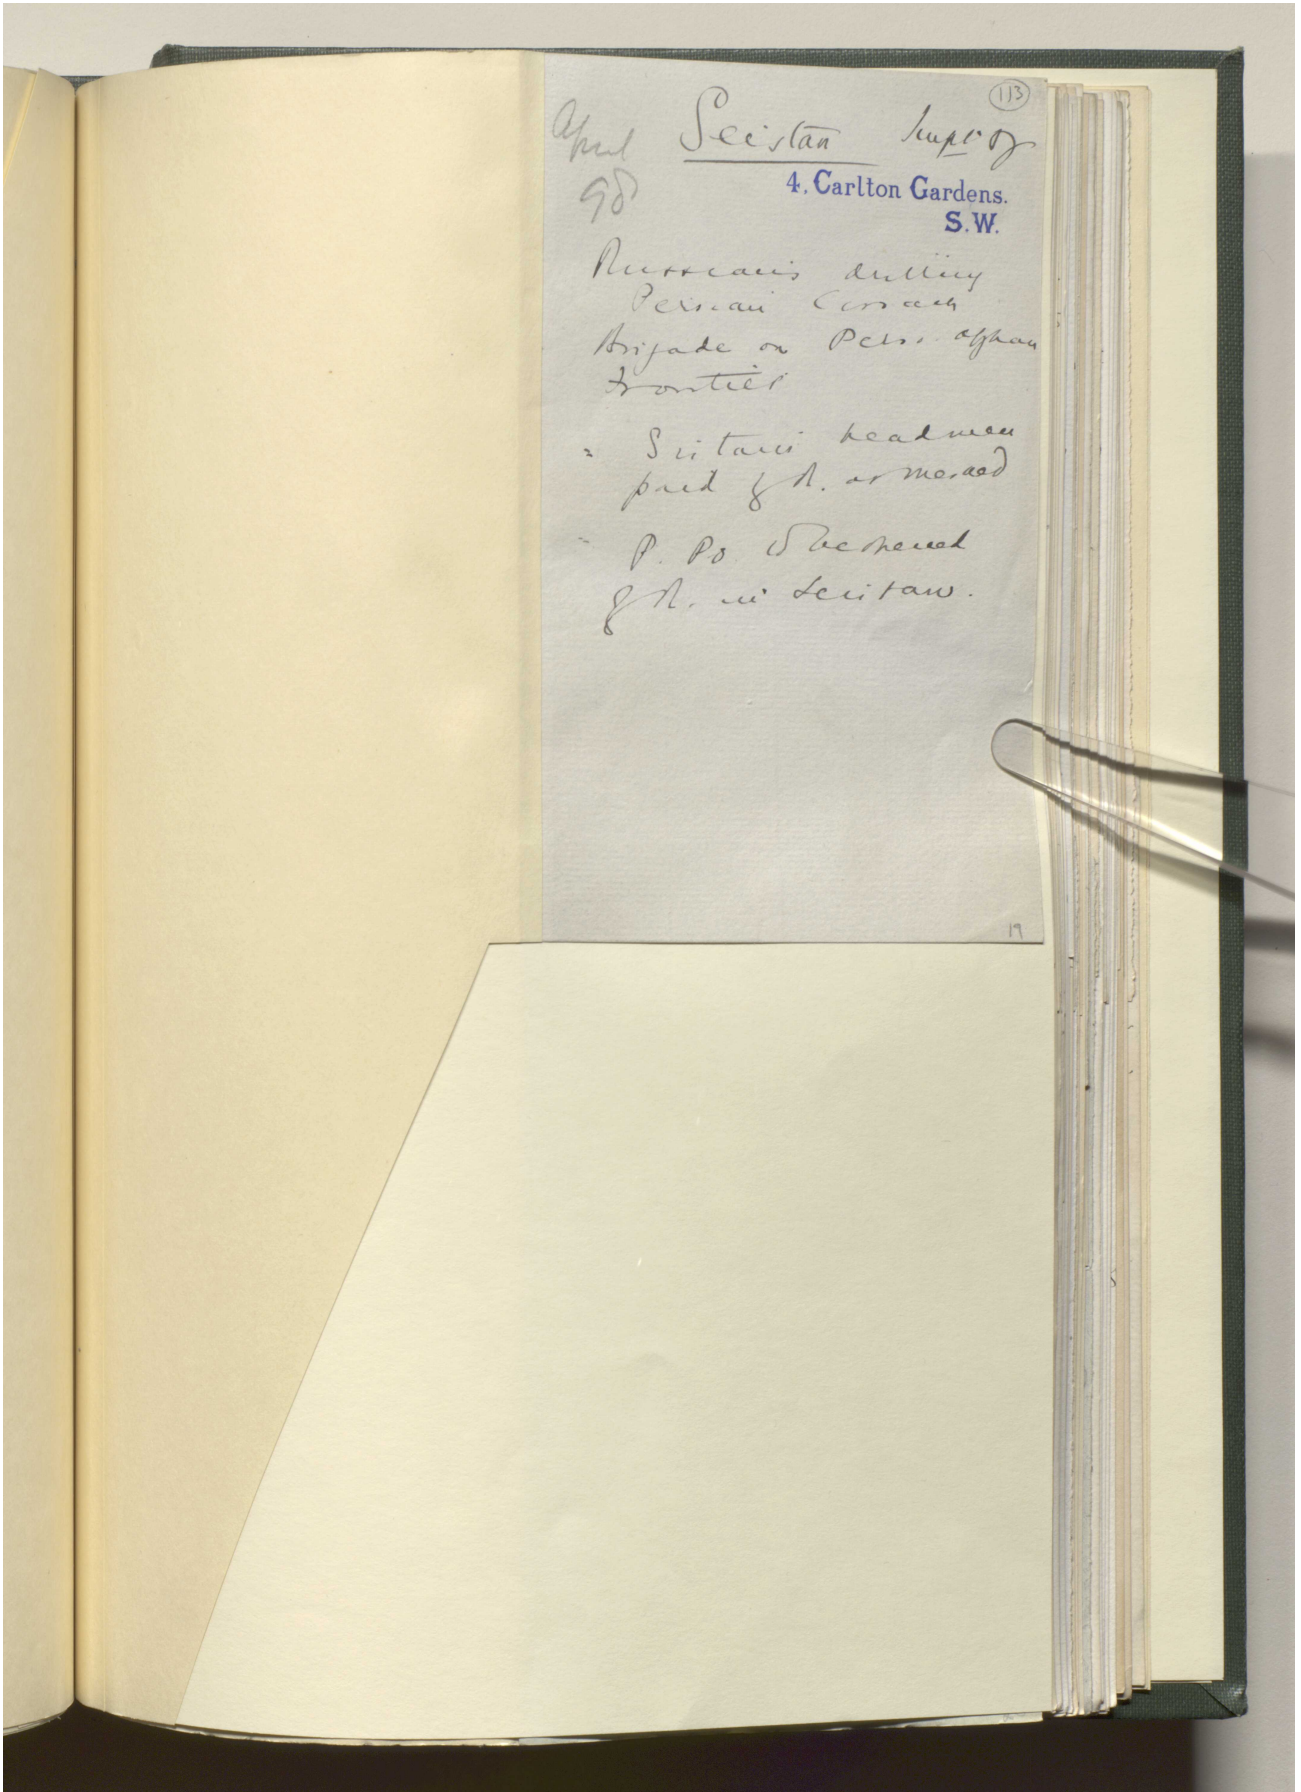 113
April Seistan Impt of
98
4, Carlton Gardens.
S.W.
Russians drilling
Persian Cossack
Brigade on Perso. Afghan
Frontier
" Seistani headmen
paid by R. at Meshed
" P. Po. to be opened
by R. in Seistan.
19